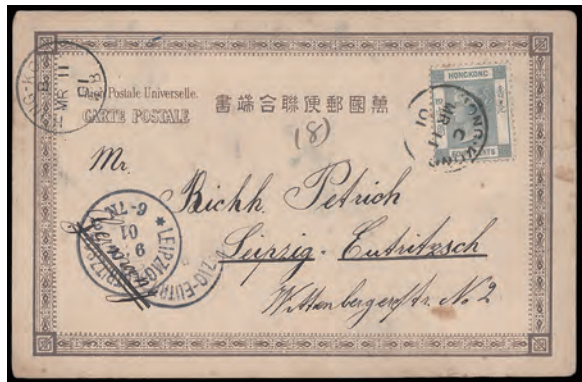 Union Postale Universelle.
CARTE POSTALE
書端合聯便郵國萬
(8)
HONGKONG
CENTS
HONG KONG
C
MR 11
01
B
MR 11
01
Mr.
Richh. Petrich
Leipzig-Eutritzsch
Wittenbergerstr. No 2
LEIPZIG-EUTRITZSCH
9
01
6-7N